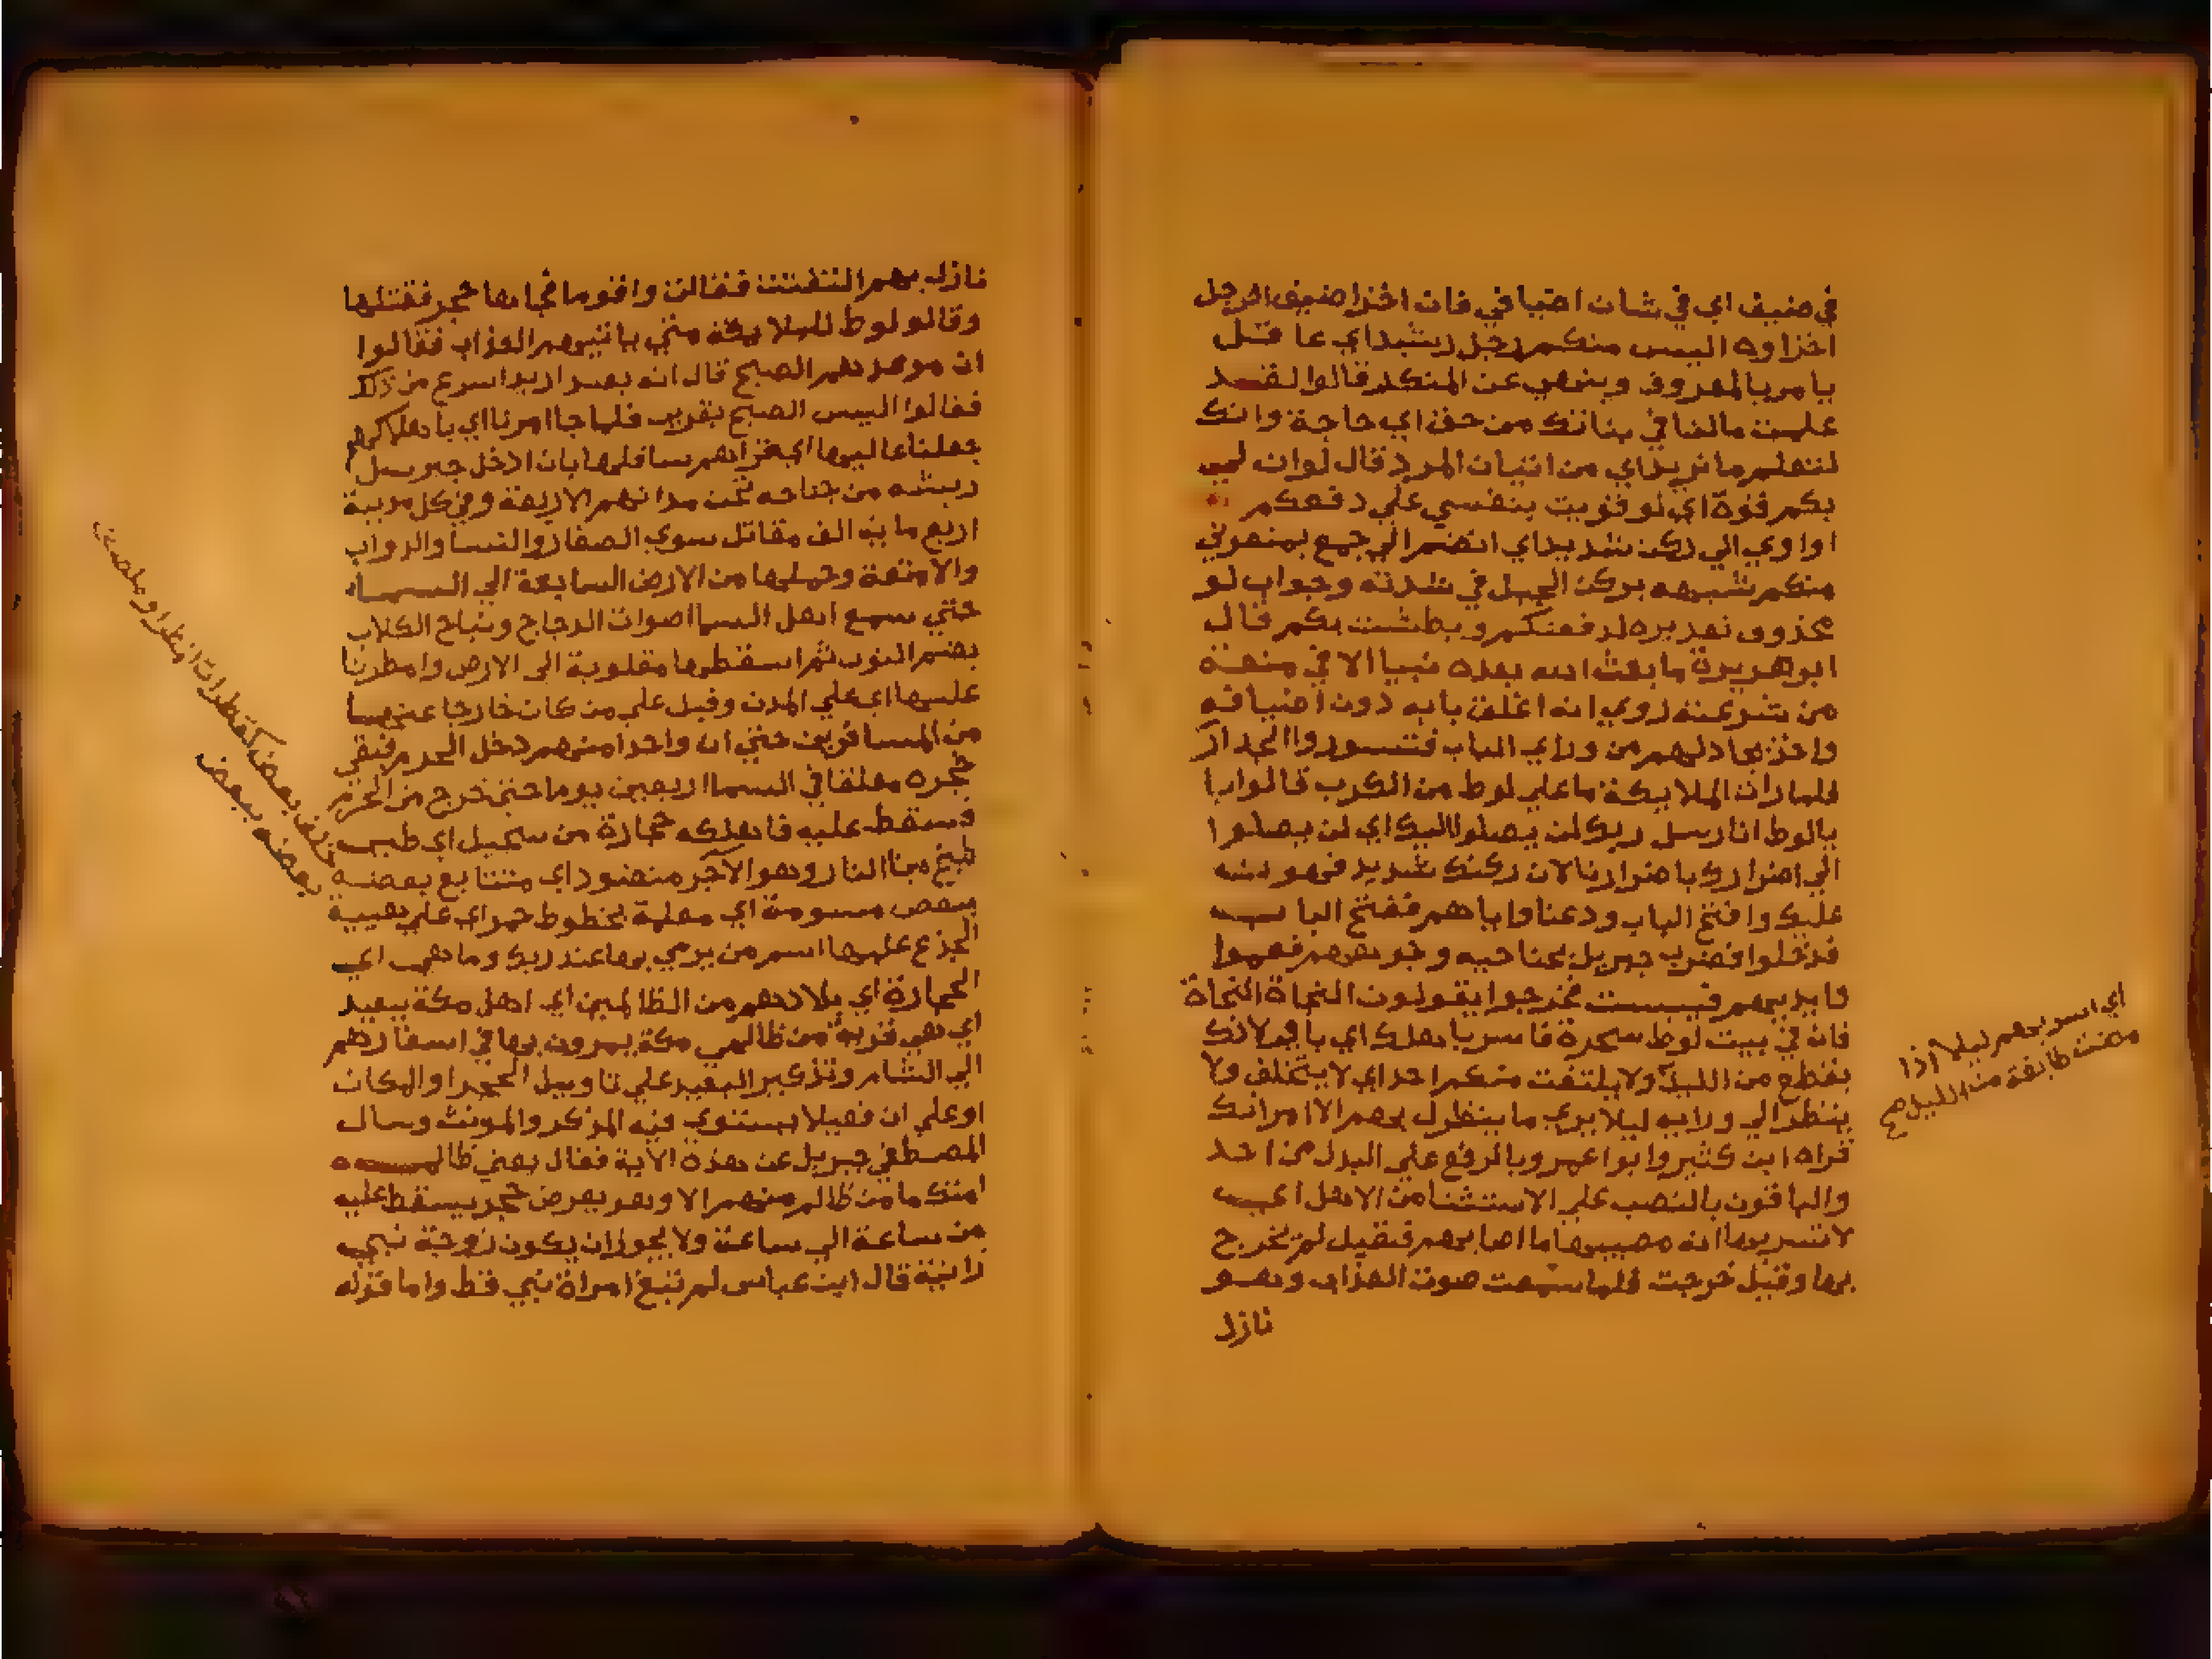 في ضيفي اي في شان اضيافي فان اخزا ضيف الرجل
اخزاوه اليس منكم رجل رشيد اي عاقل
يامر بالمعروف وينهي عن المنكر قالوا لقد
علمت مالنا في بناتك من حق اي حاجة وانك
لتعلم ما نريد اي من اتيان المرد قال لو ان لي
بكم قوة اي لو قويت بنفسي علي دفعكم
او اوي الي ركن شديد اي انضم الي جمع يمنعوني
منكم شبهه بركن الجبل في شدته وجواب لو
محذوف تقديره لدفعتكم وبطشت بكم قال
ابو هريرة ما بعث الله بعده نبيا الا في منعة
من عشيرته روي انه اغلق بابه دون اضيافه
واخذ يجادلهم من وراي الباب فتسوروا الجدار
فلما رات الملايكة ما علي لوط من الكرب قالوا يا
يالوط انا رسل ربك لن يصلوا اليك اي لن يصلوا
الي اضرارك باضرارنا لان ركنك شديد فهون
عليك وافتح الباب ودعنا واياهم ففتح الباب
فدخلوا فضرب جبريل بجناحيه وجوههم فعموا
وايديهم فيبست فخرجوا يقولون النجاة النجاة
فان في بيت لوط سحرة فاسر باهلك اي يا لوط لانك
بقطع من الليل ولا يلتفت منكم احد اي لا يتخلف ولا
ينظر الي ورايه ليلا يري ما ينزل بهم الا امراتك
قراه ابن كثير وابوا عمرو بالرفع علي البدل من احد
والباقون بالنصب علي الاستثنا من الاهل اي
لا تسر بها انه مصيبها ما اصابهم فقيل لم يخرج
بها وقيل خرجت فلما سمعت صوت العذاب وهو
نازل
اي اسر بهم ليلا اذا
مضت طايفة من الليل صح
نازل بهم التفتت فقالت واقوماه فجاها حجر فقتلها
وقال لوط للملايكة متي ياتيهم العذاب فقالوا
ان موعدهم الصبح قال انه بعيد اريد اسرع من ذلك
فقالوا اليس الصبح بقريب فلما جا امرنا اي باهلاكهم
جعلنا عاليها اي قراهم سافلها بان ادخل جبريل
ريشه من جناحه تحت مدانهم الاربعة وفي كل مدينة
اربع ماية الف مقاتل سوي الصغار والنسا والدواب
والامتعة وحملها من الارض السابعة الي السما
حتي سمع اهل السما اصوات الدجاج ونباح الكلاب
بضم النون ثم اسقطها مقلوبة الي الارض وامطرنا
عليها اي علي المدن وقيل علي من كان خارجا عنها
من المسافرين حتي ان واحدا منهم دخل الحرم فبقي
حجره معلقا في السما اربعين يوما حتي خرج من الحرم
فسقط عليه فاهلكه حجارة من سجيل اي طين
طبخ من النار وهو الآجر منضود اي متتابع بعضه
ببعض مسومة اي معلمة بخطوط حمر اي علي هيية
الجزع عليها اسم من يرمي بها عند ربك وما هي اي
الحجارة اي بلادهم من الظالمين اي اهل مكة ببعيد
اي هي قريبة من ظالمي مكة يمرون بها في اسفارهم
الي الشام وتذكير البعيد علي تاويل الحجر او المكان
او علي ان فعيلا يستوي فيه المذكر والمونث وسال
المصطفي جبريل عن هذه الآية فقال يعني ظالمي
امتك ما من ظالم منهم الا وهو بعرض حجر يسقط عليه
من ساعة الي ساعة ولا يجوز ان يكون زوجة نبي
زانية قال ابن عباس لم تبغ امراة نبي قط واما قوله
بعض كقطرات امطر او ملصق
بعضه ببعض